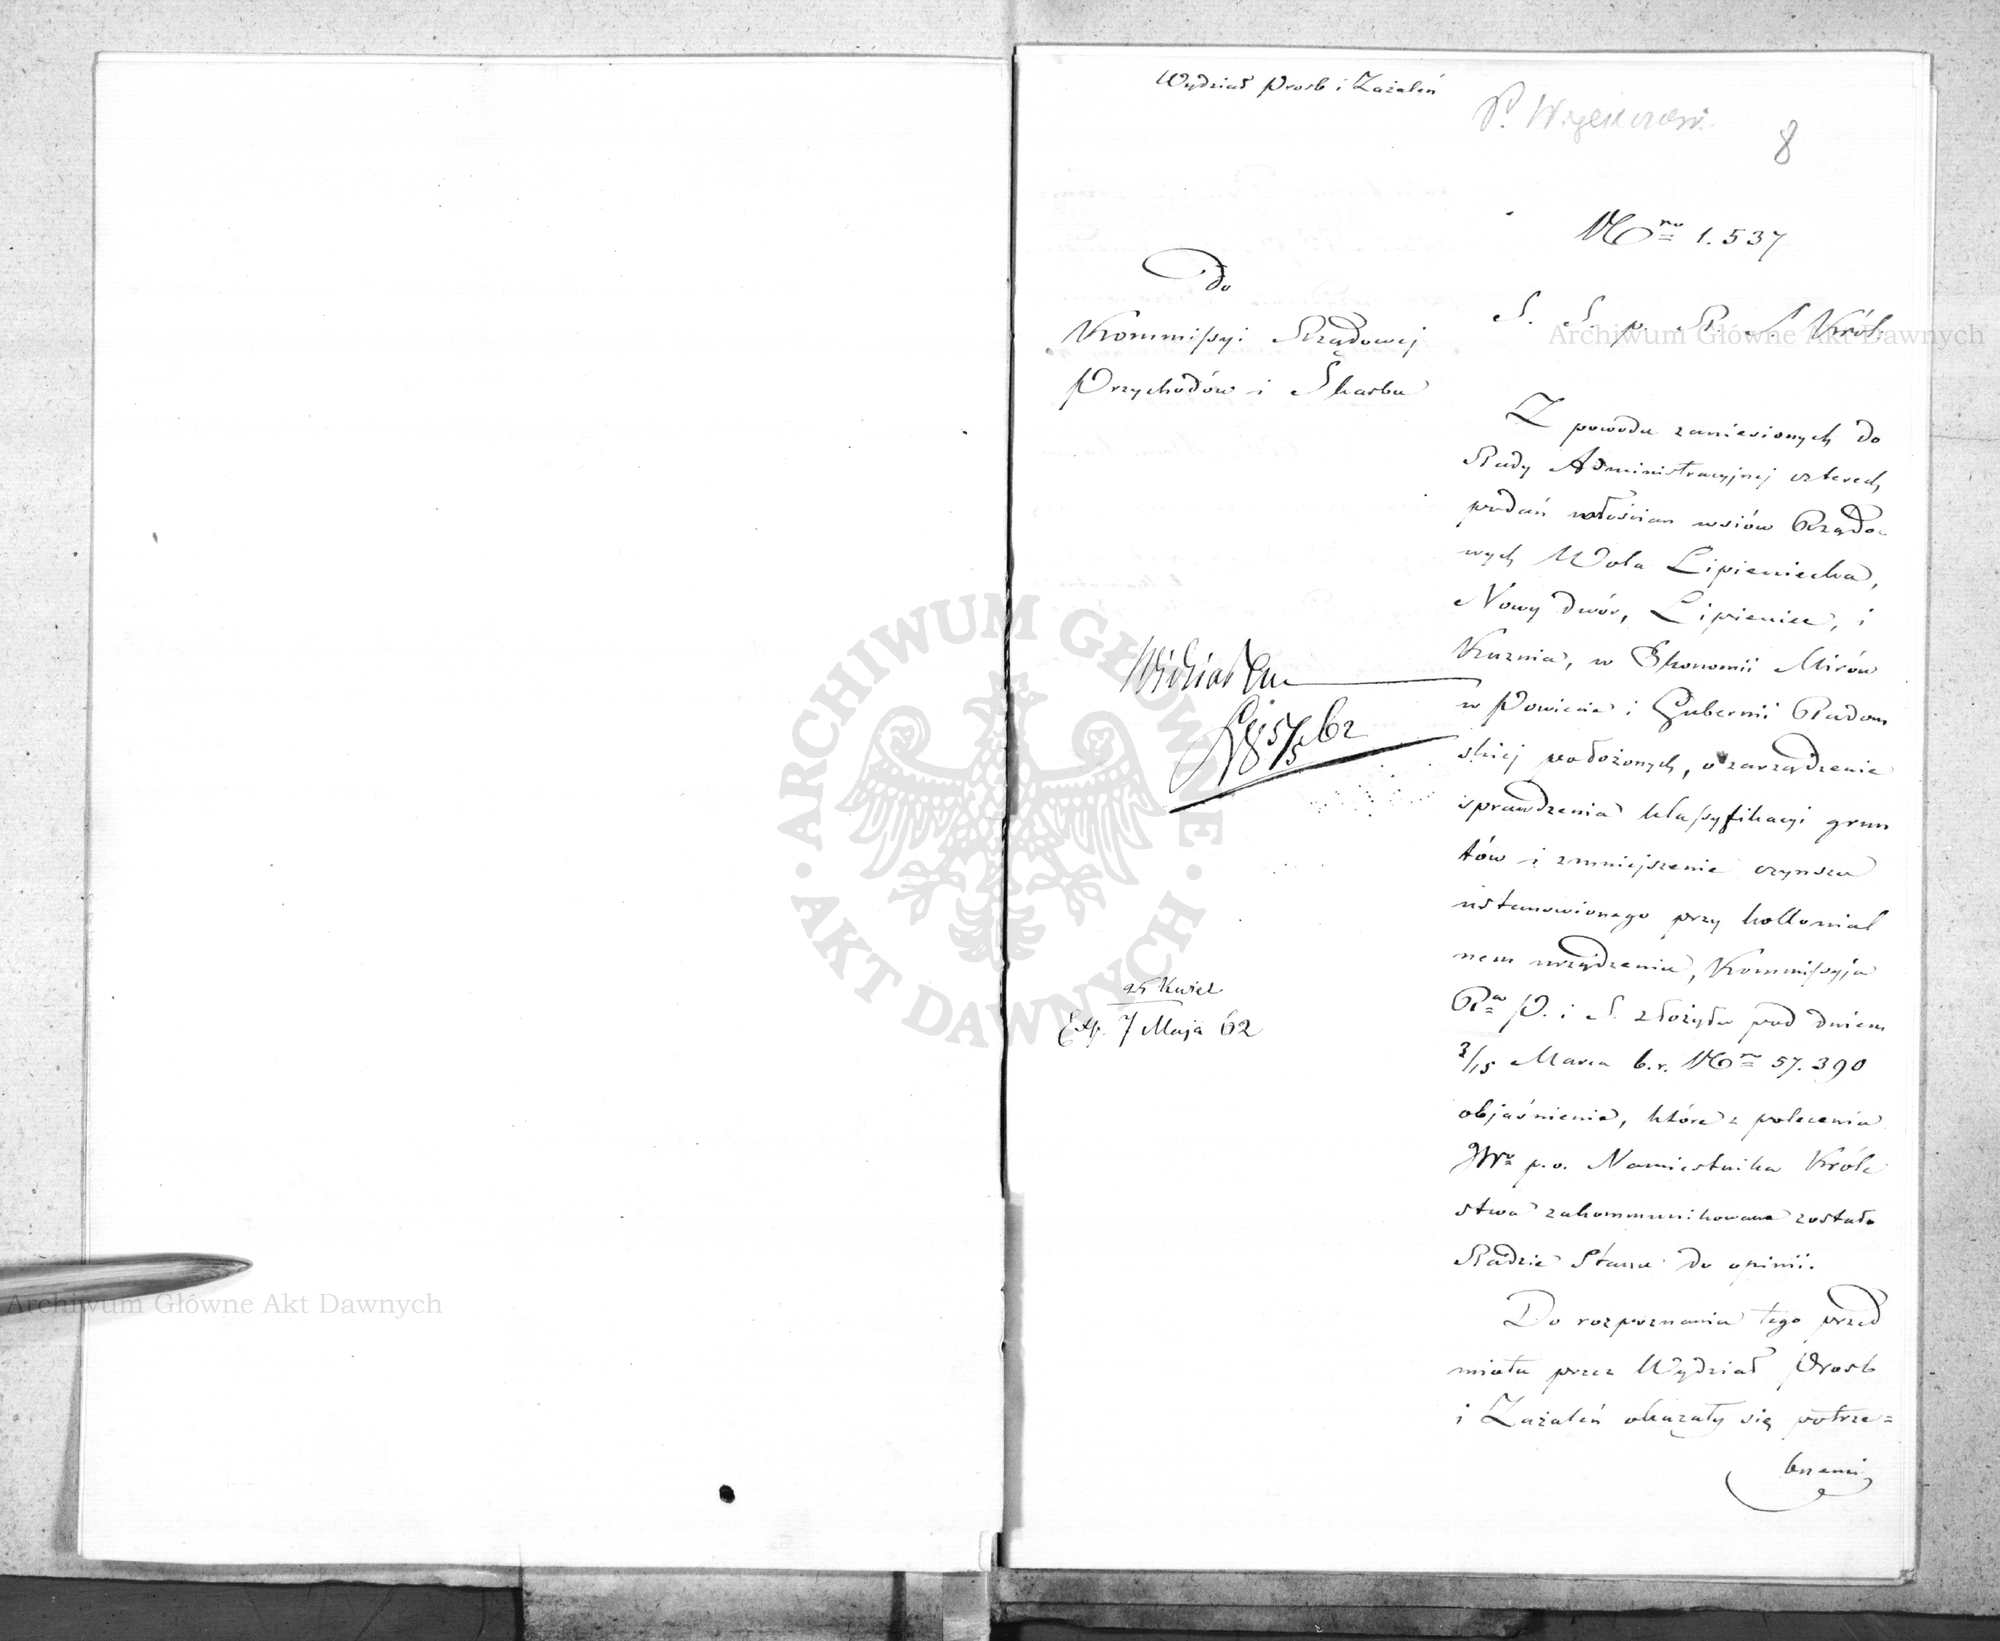 Wydział Prosb i Zażaleń
P.
8
Nro 1.537
Do
Kommissyi Rządowej
Przychodów i Skarbu
S. S. p. R. S. Król.
Z powodu zaniesionych do
Rady Administracyjnej czterech
podań włościan wsiów Rządo-
wych Wola Lipieniecka,
Nowy dwór, Lipienice, i
Kuznia, w Ekonomii Mirów
w Powiecie i Gubernii Radom
skiej położonych, o zarządzenie
sprawdzenia klassyfikacyi grun
tów i zmniejszenie czynszu
ustanowionego przy kollonial
nem urządzeniu, Kommissyja
Rwa P. i S. złożyła pod dniem
3/15 Marca b.r. Nro 57.390
objaśnienie, które z polecenia
JWo p.o. Namiestnika Króle
stwa zakommunikowane zostało
Radzie Stanu do opinii.
Do rozpoznania tego przed
miotu przez Wydział Prosb
i Zażaleń okazały się potrze=
bnemi
5/5 62
25 Kwiet
Exp. 7 Maja 62
Archiwum Główne Akt Dawnych
Archiwum Główne Akt Dawnych
ARCHIWUM GŁÓWNE
AKT DAWNYCH